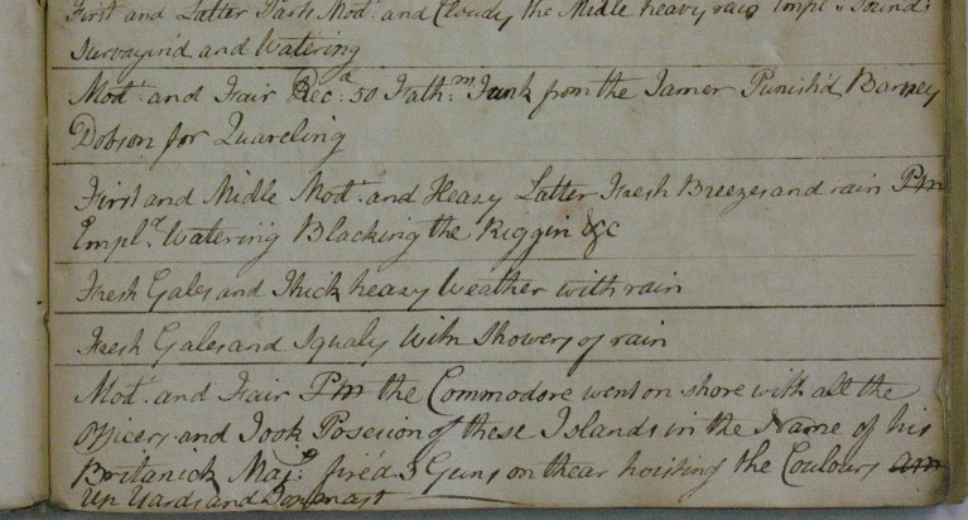 First and Latter Parts Mod: and Cloudy the Midle heavy rain Empl.d Sound:
Survayind and Watering
Mod: and Fair Rec:d 50 Fath:m Junk from the Tamer Punish'd Barney
Dobson for Quareling
First and Midle Mod: and Heazy Latter Fresh Breezes and rain Pm
Empl.d Watering Blacking the Riggin &c
Fresh Gales and Thick heazy Weather with rain
Fresh Gales and Squaly With Showers of rain
Mod: and Fair Pm the Commodore went on shore with all the
Officers and Took Posecion of these Islands in the Name of his
Britanick Maj: fire'd 3 Guns on thear hoisting the Coulours
up Yards and